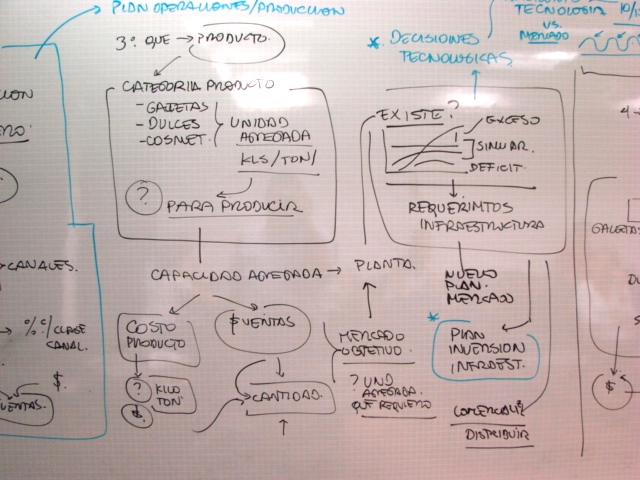 PLAN OPERACIONES/PRODUCCION
3º QUE → PRODUCTO.
CATEGORIA PRODUCTO
- GALLETAS
- DULCES
- COSMET.
UNIDAD
AGREGADA
KLS/TON/
?
PARA PRODUCIR
CAPACIDAD AGREGADA → PLANTA.
COSTO
PRODUCTO
$ VENTAS
? KILO
TON
$.
CANTIDAD.
MERCADO
OBJETIVO.
? UND
AGREGADA.
QUE REQUIERO
* DECISIONES
TECNOLOGICAS.
TECNOLOGIA
VS.
MERCADO
EXISTE?
EXCESO
SIMILAR.
DEFICIT.
REQUERIMTOS
INFRAESTRUCTURA
NUEVO
PLAN.
MERCADO
*
PLAN
INVERSION
INFRAEST.
DISTRIBUIR
→ CANALES.
→ %/CLASE
CANAL.
$.
VENTAS.
GALLETAS
$